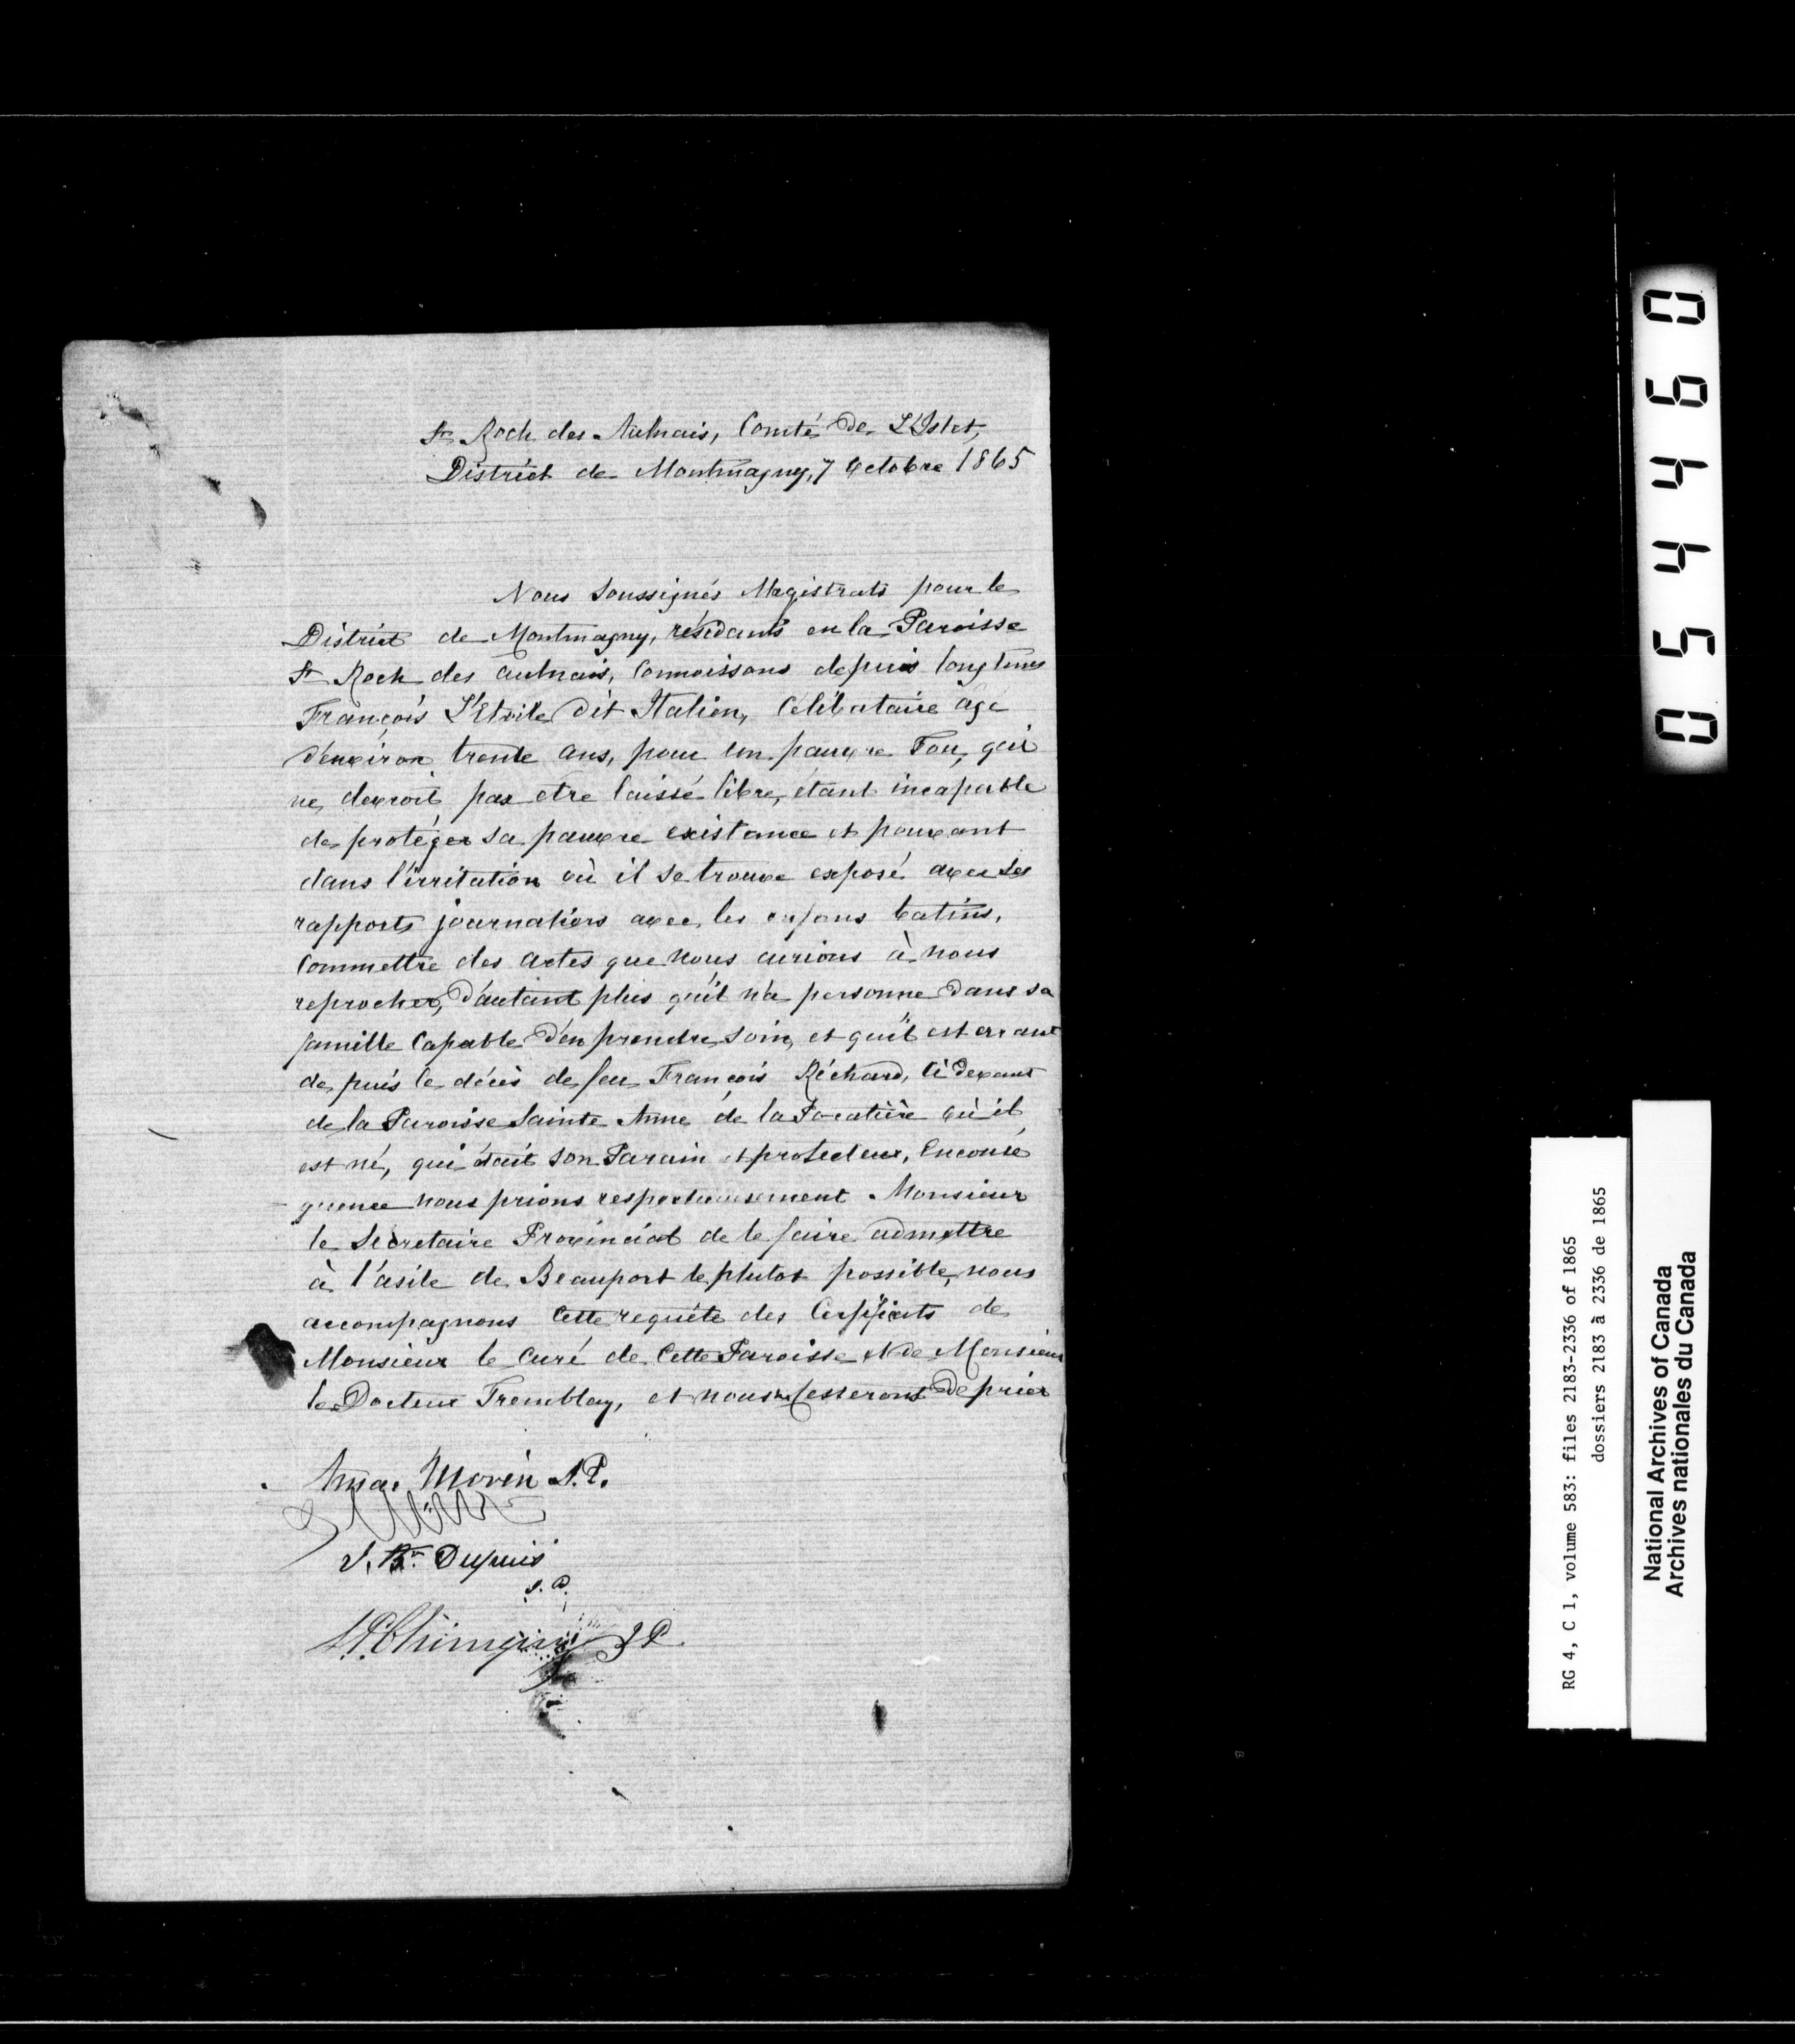 St Roch des Aulnais, Comté De L'Islet,
District de Montmagny, 7 Octobre 1865
Nous Soussignés Magistrats pour le
District de Montmagny, résidants en la Paroisse
St Roch des aulnais, Connoissons depuis longtems
François L'Etoile dit Italien, Célibataire agé
d'environ trente ans, pour un pauvre Fou, qui
ne devroit pas etre laissé libre, étant incapable
de protéger sa pauvre existance et pouvant
dans l'irritation où il se trouve exposé avec ses
rapports journaliers avec les enfans
Commettre des actes que nous aurions à nous
reprocher, d'autant plus qu'il n'a personne dans sa
famille Capable d'en prendre soin, et qu'il est errant
de puis le décès de feu François Richard, Ci devant
de la Paroisse Sainte Anne de la Pocatière où il
est né, qui était son Parain et protecteur, Enconsé
quence nous prions respectueusement Monsieur
le Secretaire Provincial de le faire admettre
à l'asile de Beauport le plutot possible, nous
accompagnons Cette requête des Certificats de
Monsieur le Curé de Cette Paroisse & de Monsieur
le Docteur Tremblay, et nous ne Cesserons De prier
Ama. Morin J.P.
J. Bte Dupuis
J.P.
J.P.
054460
RG 4, C 1, volume 583: files 2183-2336 of 1865
dossiers 2183 à 2336 de 1865
National Archives of Canada
Archives nationales du Canada